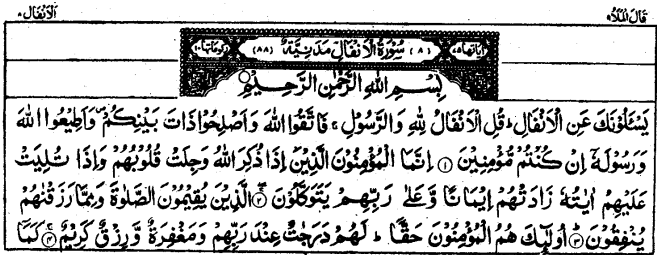 قَالَ الْمَلَاُ ۹ الْاَنْفَال ۸
اٰيَاتُهَا ۷۵ (۸) سُوْرَةُ الْاَنْفَالِ مَدَنِيَّةٌ (۸۸) رُكُوْعَاتُهَا ۱۰
بِسْمِ اللّٰهِ الرَّحْمٰنِ الرَّحِيْمِ
يَسْـَٔلُوْنَكَ عَنِ الْاَنْفَالِ ؕ قُلِ الْاَنْفَالُ لِلّٰهِ وَالرَّسُوْلِ ۚ فَاتَّقُوا اللّٰهَ وَاَصْلِحُوْا ذَاتَ بَيْنِكُمْ ۪ وَاَطِيْعُوا اللّٰهَ
وَرَسُوْلَهٗۤ اِنْ كُنْتُمْ مُّؤْمِنِيْنَ ۱ اِنَّمَا الْمُؤْمِنُوْنَ الَّذِيْنَ اِذَا ذُكِرَ اللّٰهُ وَجِلَتْ قُلُوْبُهُمْ وَاِذَا تُلِيَتْ
عَلَيْهِمْ اٰيٰتُهٗ زَادَتْهُمْ اِيْمَانًا وَّعَلٰى رَبِّهِمْ يَتَوَكَّلُوْنَ ۲ الَّذِيْنَ يُقِيْمُوْنَ الصَّلٰوةَ وَمِمَّا رَزَقْنٰهُمْ
يُنْفِقُوْنَ ۳ اُولٰٓئِكَ هُمُ الْمُؤْمِنُوْنَ حَقًّا ؕ لَهُمْ دَرَجٰتٌ عِنْدَ رَبِّهِمْ وَمَغْفِرَةٌ وَّرِزْقٌ كَرِيْمٌ ۴ كَمَاۤ